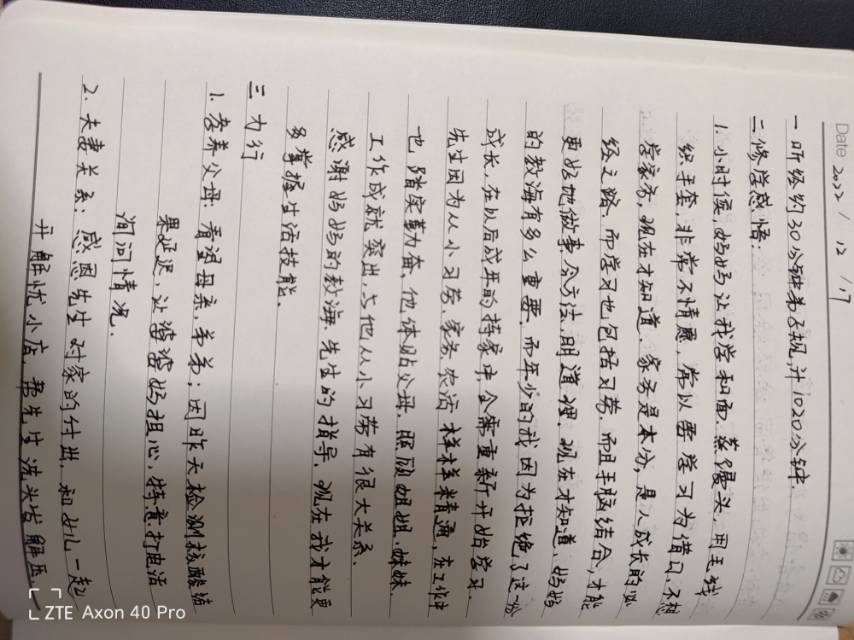 Date 2022 / 12 / 17
一 听经约30分钟弟子规,共1020分钟.
二 修学感悟:
1. 小时侯,妈妈让我学和面.蒸馒头.用毛线
织手套,非常不情愿,常以要学习为借口,不想
学家务,现在才知道.家务是本分,是人成长的必
经之路.而学习也包括习劳.而且手脑结合,才能
更好地做事.会方法.明道理.现在才知道,妈妈
的教海有多么重要.而年少的我因为拒绝了这份
成长,在以后成年的持家中.会需重新开始学习.
先生因为从小习劳.家务.农活.样样精通,在工作中
也踏实勤奋,他体贴父母.照顾姐姐.妹妹.
工作成就突出,与他从小习劳有很大关系.
感谢妈妈的教海.先生的指导,现在我才能更
多掌握生活技能.
三 力行
1. 孝养父母:看望母亲.弟弟;因昨天检测核酸结
果延迟,让婆婆妈担心,特意打电话
询问情况.
2. 夫妻关系:感恩先生对家的付出,和女儿一起
开解忧小店,帮先生洗头发解压.
ZTE Axon 40 Pro